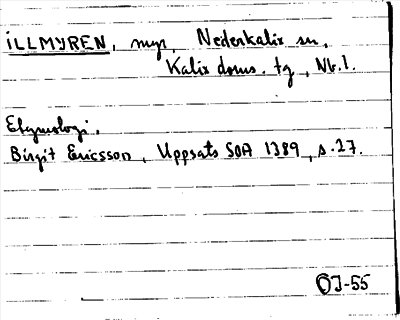 ILLMYREN, myr, Nederkalix sn,
Kalix doms. tg, Nb. l.
Etymologi.
Birgit Ericsson, Uppsats SOA 1389, s. 27.
OJ-55